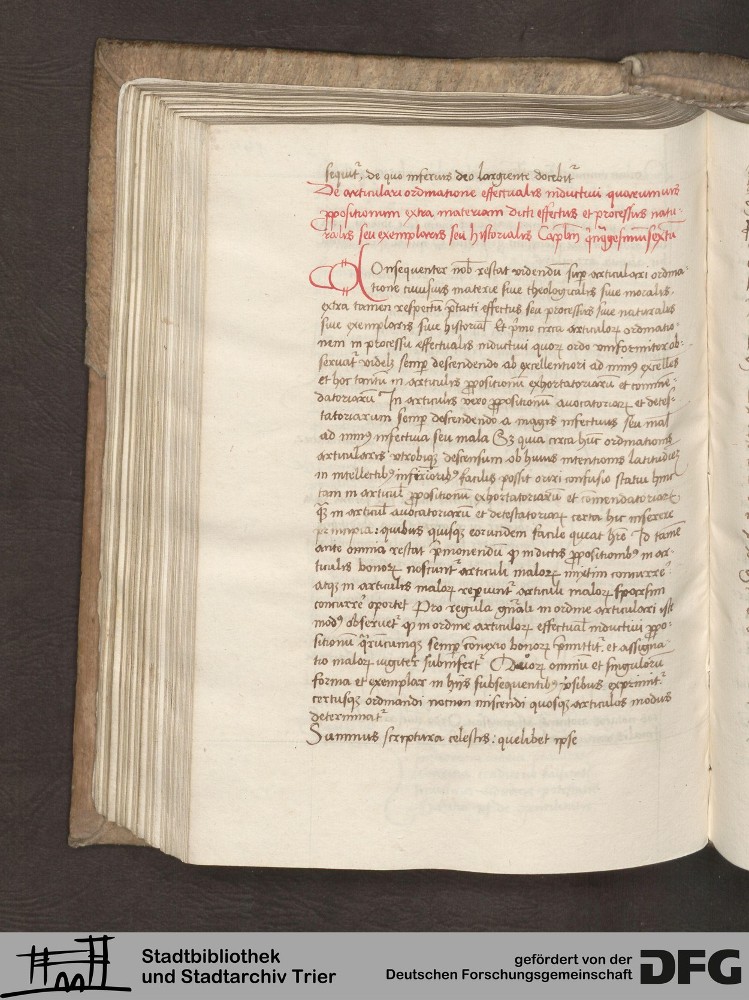 sequit᷑. de quo inferius deo largiente docebit᷑
De articulari ordinatione effectualis inductiui quarumuis
ꝓpositionum extra materiam dicti effectus et processus natu-
ralis seu exemplaris seu historialis Caplm qͥnqͣgesimusextu
Onsequenter nob restat videndu sup articulari ordina-
tione cuiusuis materie siue theologicalis siue moralis.
extra tamen respectu p̄tacti effectus seu processus siue naturalis
siue exemplaris siue historial Et pͥmo circa articuloꝝ ordinatio-
nem in processu effectualis inductiui quoꝝ ordo vniformiter ob-
seruat᷑ videlꝫ semp descendendo ab excellentiori ad minꝰ excelles
et hoc tantu in articulis ꝓpositionu exhortatoriaru et comme-
datoriaru In articulis vero ꝓpositionu auocatoriaꝝ et detes-
tatoriarum semp descendendo a magis infectiuis seu mal
ad minꝰ infectiua seu mala Sꝫ quia circa huc ordinationis
articularis vtrobiqꝫ descensum ob huius intentionis latitudine
in intellectibꝰ inferioribꝰ facilis possit oriri confusio statui hinc
tam in articul ꝓpositionu exhortatoriaru et comendatoriaꝝ
qͣꝫ in articul auocatoriaru et detestatoriaꝝ certa hic inserere
principia: quibus quisqꝫ eorundem facile queat hr̄e Id tame
ante omnia restat pͥmonendu ꝙ in dictis ꝓpositionibꝰ in ar-
ticulis bonoꝝ noscunt᷑ articuli maloꝝ mixtim concurre
atqꝫ in articulis maloꝝ reperiunt᷑ articuli maloꝝ sparsim
concurre oportet Pro regula gn̄ali in ordine articulari iste
modꝰ obseruet᷑ ꝙ in ordine articuloꝝ effectual inductiui ꝓpo-
sitionu qͣrucumqꝫ semp conexio bonoꝝ p̄mittit᷑. et assigna-
tio maloꝝ iugiter subinfert᷑ Quoꝝ omniu et singuloru
forma et exemplar in hijs subsequentibꝰ vsibus exprimit᷑
certusqꝫ ordinandi necnon miscendi quosqꝫ articulos modus
determinat᷑
Summus scriptura celestis: quelibet ipse
Stadtbibliothek
und Stadtarchiv Trier
gefördert von der
Deutschen Forschungsgemeinschaft
DFG